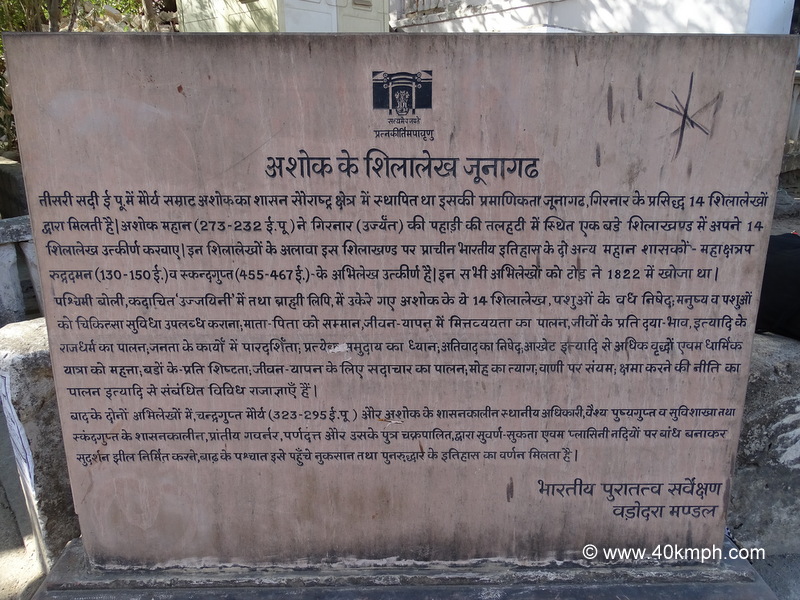 सत्यमेव जयते
प्रत्नकीर्तिमपावृणु
अशोक के शिलालेख जूनागढ
तीसरी सदी ई पू. में मौर्य सम्राट अशोक का शासन सौराष्ट्र क्षेत्र में स्थापित था इसकी प्रमाणिकता जूनागढ, गिरनार के प्रसिद्ध 14 शिलालेखों
द्वारा मिलती है| अशोक महान (273-232 ई.पू ) ने गिरनार (उर्ज्यंत) की पहाड़ी की तलहटी में स्थित एक बडे शिलाखण्ड में अपने 14
शिलालेख उत्कीर्ण करवाए| इन शिलालेखों के अलावा इस शिलाखण्ड पर प्राचीन भारतीय इतिहास के दो अन्य महान शासकों - महाक्षत्रप
रुद्रदमन (130-150 ई.) व स्कन्दगुप्त (455-467 ई.)- के अभिलेख उत्कीर्ण है| इन सभी अभिलेखों को टोड ने 1822 में खोजा था |
पश्चिमी बोली, कदाचित 'उज्जयिनी' में तथा ब्राह्मी लिपि, में उकेरे गए अशोक के ये 14 शिलालेख, पशुओं के वध निषेद; मनुष्य व पशुओं
को चिकित्सा सुविधा उपलब्ध कराना; माता-पिता को सम्मान, जीवन-यापन में मित्तव्ययता का पालन, जीवों के प्रति दया-भाव, इत्यादि के
राजधर्म का पालन; जनता के कार्यों में पारदर्शिता; प्रत्येक समुदाय का ध्यान; अतिवाद का निषेद; आखेट इत्यादि से अधिक वृद्धों एवम धार्मिक
यात्रा को महत्ता; बडों के-प्रति शिष्टता; जीवन-यापन के लिए सदाचार का पालन; मोह का त्याग; वाणी पर संयम; क्षमा करने की नीति का
पालन इत्यादि से संबंधित विविध राजाज्ञाएँ हैं |
बाद के दोनों अभिलेखों में, चन्द्रगुप्त मौर्य (323-295 ई.पू ) और अशोक के शासनकालीन स्थानीय अधिकारी, वैश्य पुष्यगुप्त व सुविशाखा तथा
स्कंदगुप्त के शासनकालीन, प्रांतीय गवर्नर, पर्णदत्त और उसके पुत्र चक्रपालित, द्वारा सुवर्ण-सुकता एवम प्लासिनी नदियों पर बांध बनाकर
सुदर्शन झील निर्मित करने, बाढ़ के पश्चात इसे पहुँचे नुकसान तथा पुनरुद्धार के इतिहास का वर्णन मिलता है |
भारतीय पुरातत्व सर्वेक्षण
वड़ोदरा मण्डल
© www.40kmph.com